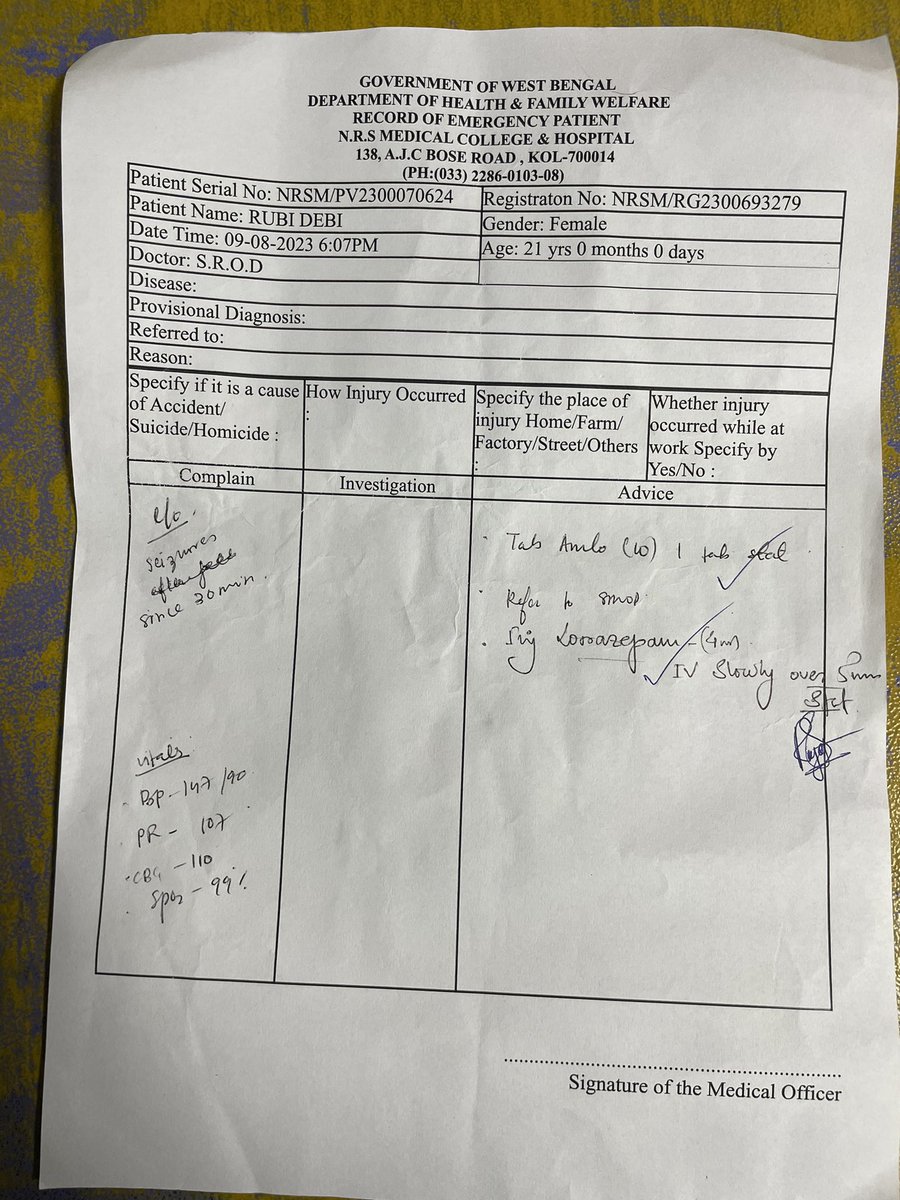 GOVERNMENT OF WEST BENGAL
DEPARTMENT OF HEALTH & FAMILY WELFARE
RECORD OF EMERGENCY PATIENT
N.R.S MEDICAL COLLEGE & HOSPITAL
138, A.J.C BOSE ROAD , KOL-700014
(PH:(033) 2286-0103-08)
Patient Serial No: NRSM/PV2300070624
Registraton No: NRSM/RG2300693279
Patient Name: RUBI DEBI
Gender: Female
Date Time: 09-08-2023 6:07PM
Age: 21 yrs 0 months 0 days
Doctor: S.R.O.D
Disease:
Provisional Diagnosis:
Referred to:
Reason:
Specify if it is a cause
of Accident/
Suicide/Homicide :
How Injury Occurred
:
Specify the place of
injury Home/Farm/
Factory/Street/Others
:
Whether injury
occurred while at
work Specify by
Yes/No :
Complain
Investigation
Advice
c/o.
seizures
since 30 min.
vitals
BP - 147/90
PR - 107
CBG - 110
SpO2 - 99%
Tab Amlo (10) 1 tab stat
Refer to
Inj Lorazepam - (4
IV Slowly over 5min
Stat
Signature of the Medical Officer